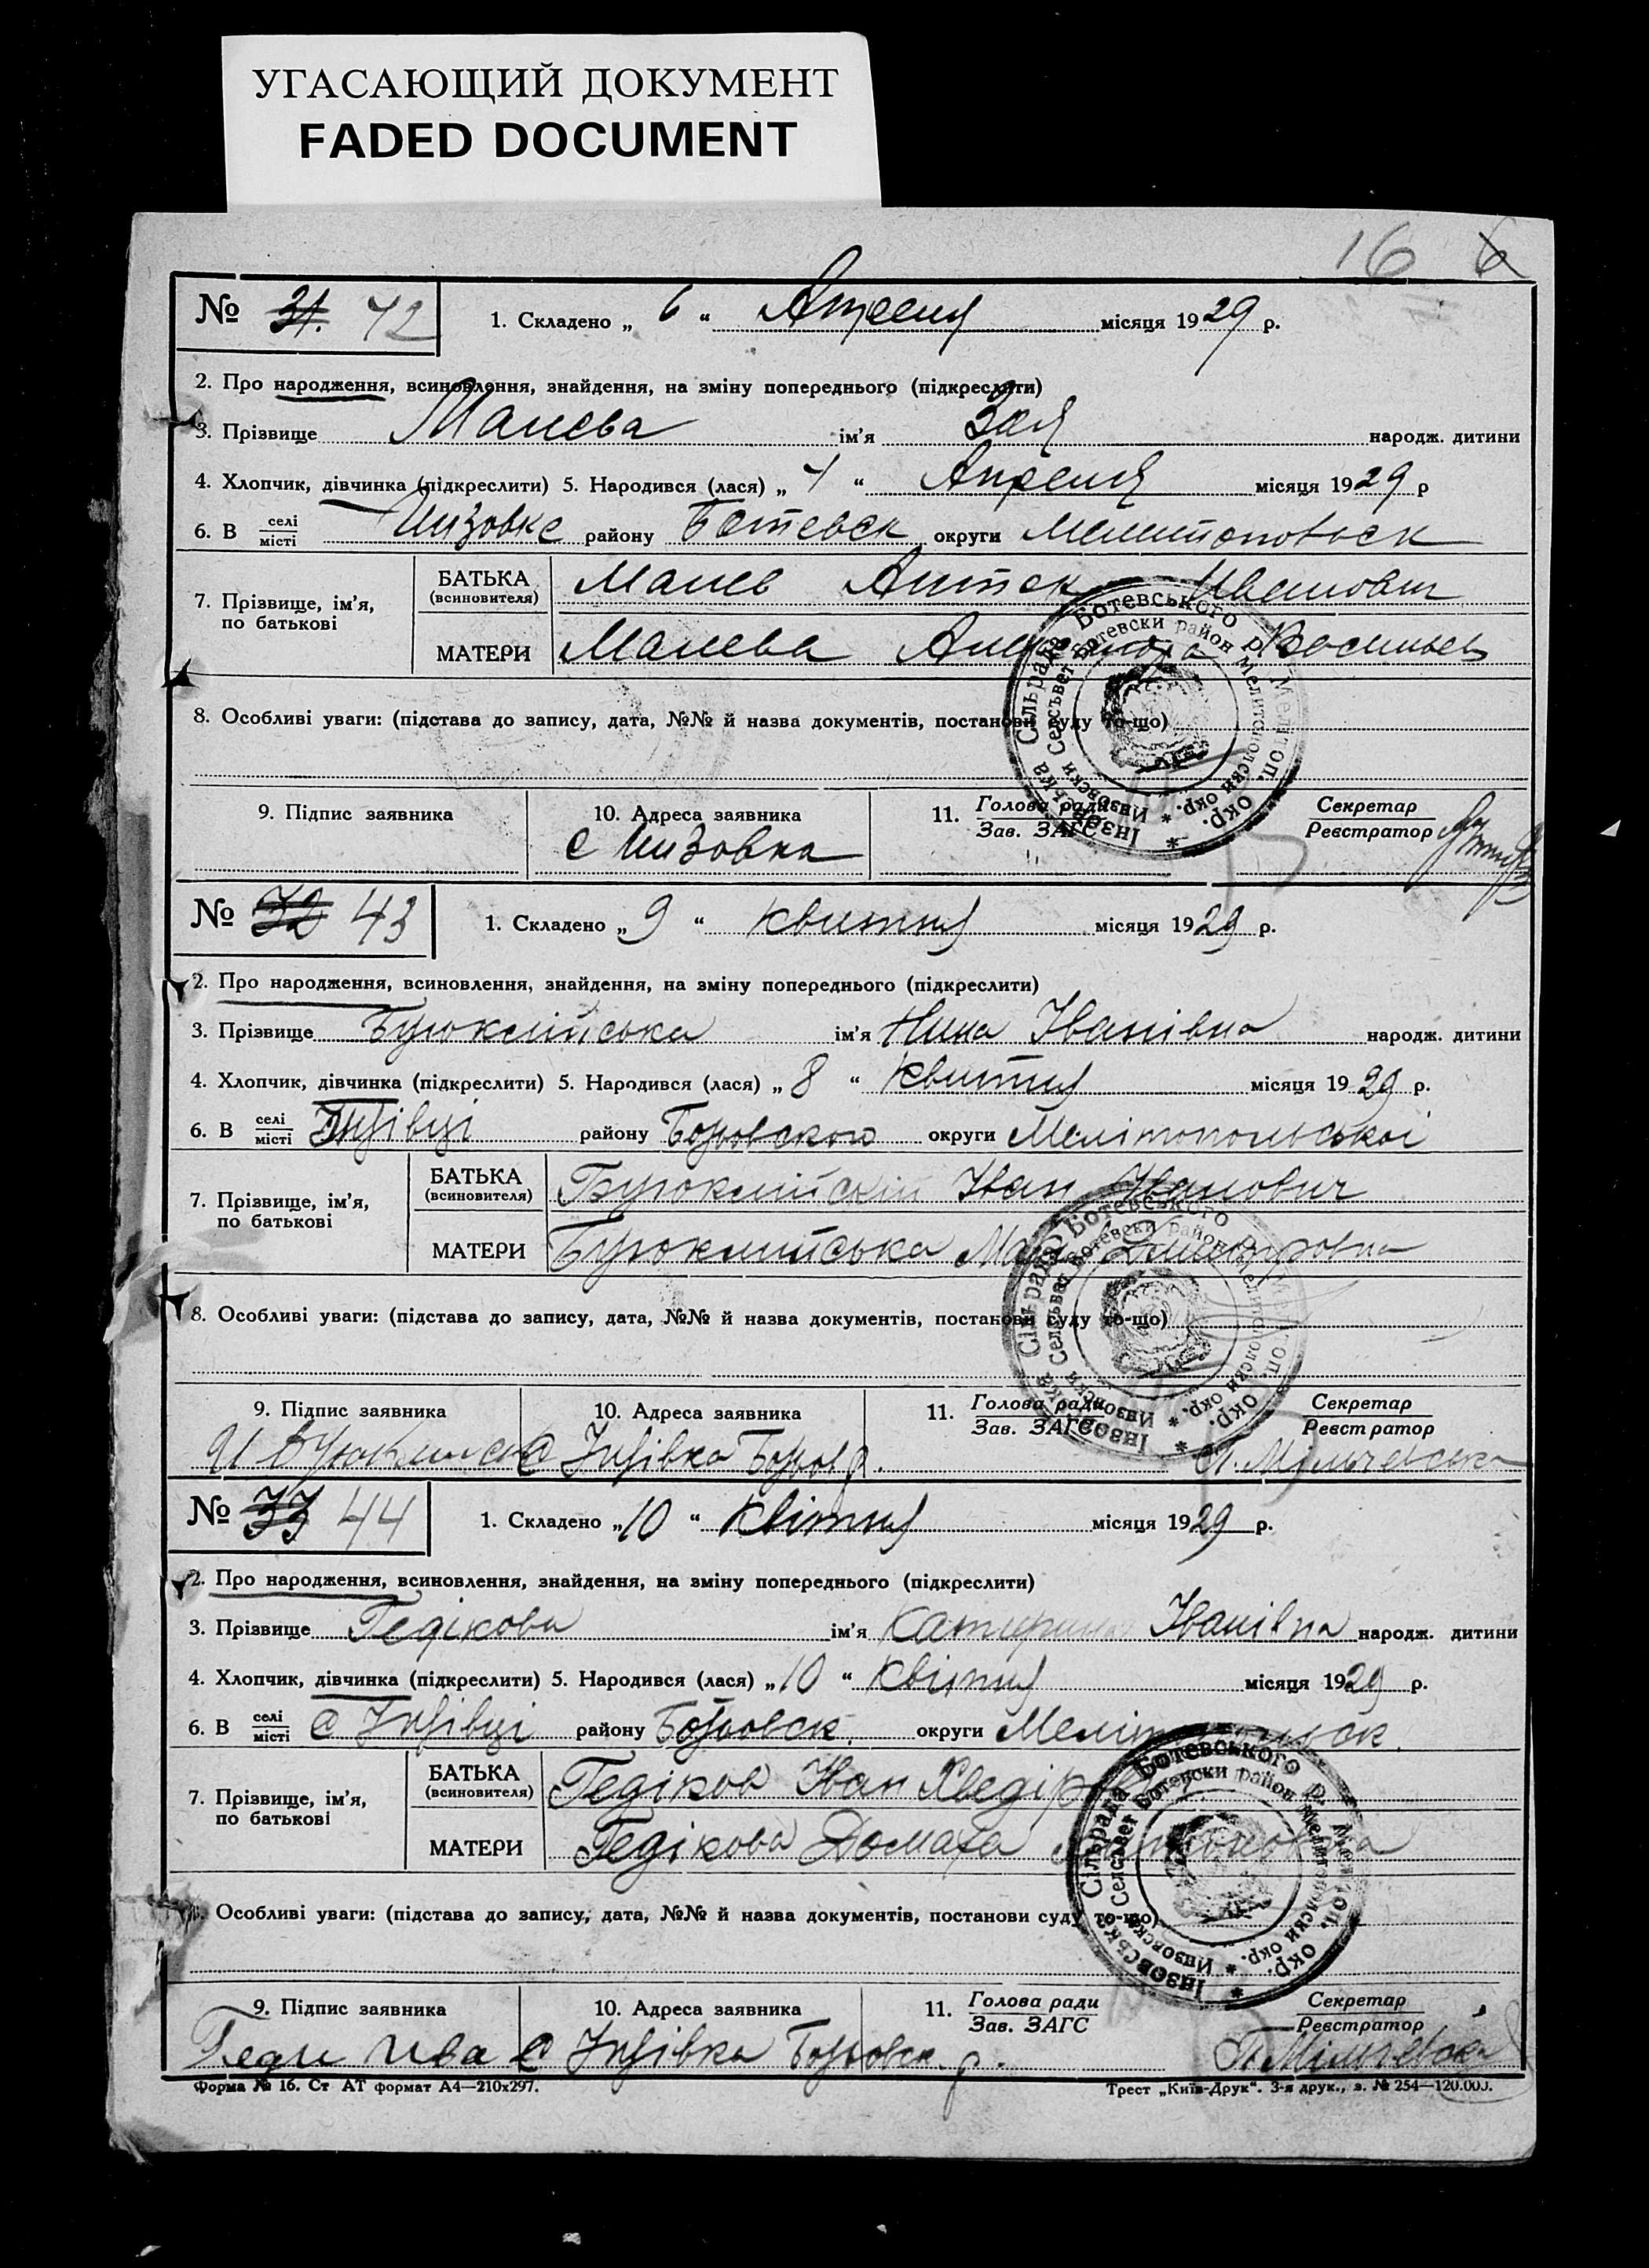 УГАСАЮЩИЙ ДОКУМЕНТ
FADED DOCUMENT
16 6
№ 31. 42 1. Складено „ 6 “ Апреля місяця 1929 р.
2. Про народження, всиновлення, знайдення, на зміну попереднього (підкреслити)
3. Прізвище Манева ім'я Зоя народж. дитини
4. Хлопчик, дівчинка (підкреслити) 5. Народився (лася) „ 4 “ Апреля місяця 1929 р
6. В селі/місті Инзовке району Ботевск округи Мелитопольск
7. Прізвище, ім'я, по батькові БАТЬКА (всиновителя) Манев Иванович
МАТЕРИ Манева Васильев
8. Особливі уваги: (підстава до запису, дата, №№ й назва документів, постанови суду то-що)
9. Підпис заявника 10. Адреса заявника 11. Голова ради/Зав. ЗАГС Секретар/Реєстратор
с Инзовка
Інзовська Сільрада Ботевського р. Меліτоп. окр.
Инзовски Селсъвет Ботевски район Мелитополски окр.
№ 32 43 1. Складено „ 9 “ квитня місяця 1929 р.
2. Про народження, всиновлення, знайдення, на зміну попереднього (підкреслити)
3. Прізвище Буюклийська ім'я Нина Іванівна народж. дитини
4. Хлопчик, дівчинка (підкреслити) 5. Народився (лася) „ 8 “ Квитня місяця 1929 р.
6. В селі/місті Інзівці району округи Мелітопольської
7. Прізвище, ім'я, по батькові БАТЬКА (всиновителя) Буюклийскій Іван Иванович
МАТЕРИ Буюклийська
8. Особливі уваги: (підстава до запису, дата, №№ й назва документів, постанови суду то-що)
9. Підпис заявника 10. Адреса заявника 11. Голова ради/Зав. ЗАГС Секретар/Реєстратор
с Інзівка
Інзовська Сільрада Ботевського р. Меліτоп. окр.
Инзовски Селсъвет Ботевски район Мелитополски окр.
№ 33 44 1. Складено „ 10 “ Квітня місяця 1929 р.
2. Про народження, всиновлення, знайдення, на зміну попереднього (підкреслити)
3. Прізвище Гедікова ім'я Катерина Іванівна народж. дитини
4. Хлопчик, дівчинка (підкреслити) 5. Народився (лася) „ 10 “ Квітня місяця 1929 р.
6. В селі/місті с Інзівці району округи Мелітопольск.
7. Прізвище, ім'я, по батькові БАТЬКА (всиновителя) Гедіков Іван
МАТЕРИ Гедікова Домаха
Особливі уваги: (підстава до запису, дата, №№ й назва документів, постанови суду то-що)
9. Підпис заявника 10. Адреса заявника 11. Голова ради/Зав. ЗАГС Секретар/Реєстратор
Геди Ива с Інзівка р.
Інзовська Сільрада Ботевського р. Меліτоп. окр.
Инзовски Селсъвет Ботевски район Мелитополски окр.
Форма № 16. Ст АТ формат А4—210х297. Трест „Київ-Друк“. 3-я друк., з. № 254—120.000.